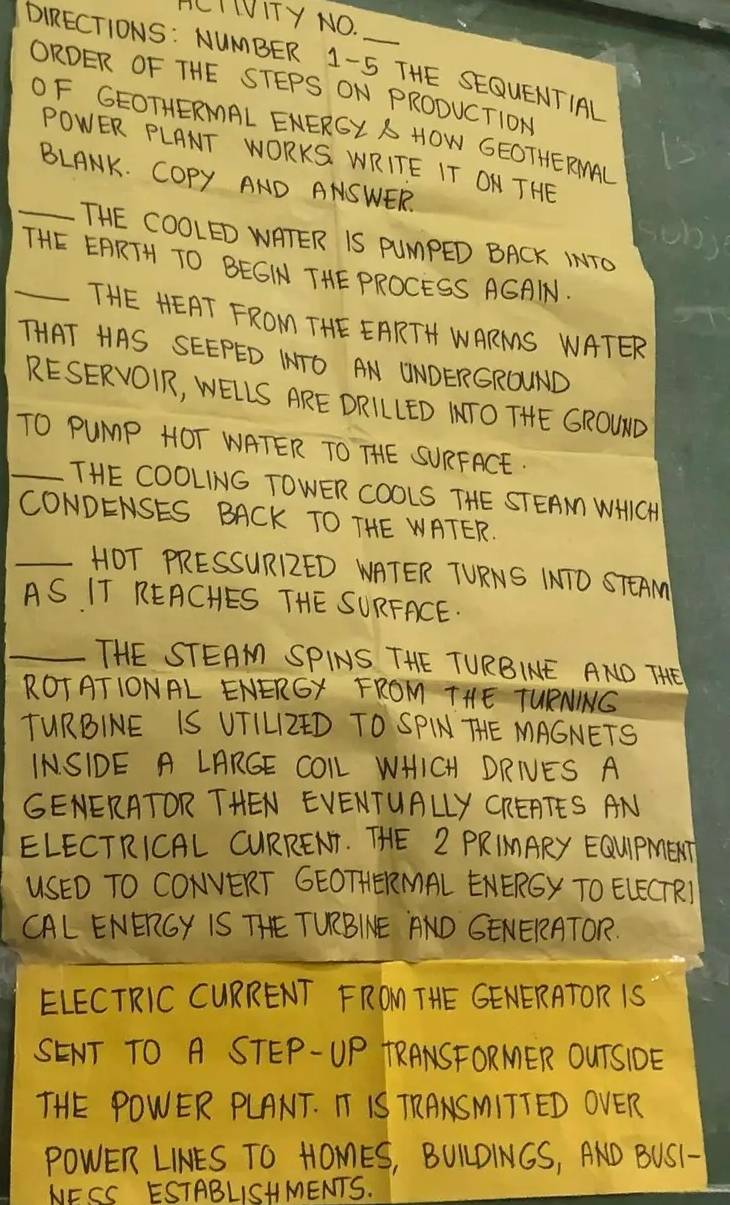 ACTIVITY NO. __
DIRECTIONS: NUMBER 1-5 THE SEQUENTIAL
ORDER OF THE STEPS ON PRODUCTION
OF GEOTHERMAL ENERGY & HOW GEOTHERMAL
POWER PLANT WORKS WRITE IT ON THE
BLANK. COPY AND ANSWER.
____ THE COOLED WATER IS PUMPED BACK INTO
THE EARTH TO BEGIN THE PROCESS AGAIN.
____ THE HEAT FROM THE EARTH WARMS WATER
THAT HAS SEEPED INTO AN UNDERGROUND
RESERVOIR, WELLS ARE DRILLED INTO THE GROUND
TO PUMP HOT WATER TO THE SURFACE.
____ THE COOLING TOWER COOLS THE STEAM WHICH
CONDENSES BACK TO THE WATER.
____ HOT PRESSURIZED WATER TURNS INTO STEAM
AS IT REACHES THE SURFACE.
____ THE STEAM SPINS THE TURBINE AND THE
ROTATIONAL ENERGY FROM THE TURNING
TURBINE IS UTILIZED TO SPIN THE MAGNETS
INSIDE A LARGE COIL WHICH DRIVES A
GENERATOR THEN EVENTUALLY CREATES AN
ELECTRICAL CURRENT. THE 2 PRIMARY EQUIPMENT
USED TO CONVERT GEOTHERMAL ENERGY TO ELECTRI
CAL ENERGY IS THE TURBINE AND GENERATOR.
ELECTRIC CURRENT FROM THE GENERATOR IS
SENT TO A STEP-UP TRANSFORMER OUTSIDE
THE POWER PLANT. IT IS TRANSMITTED OVER
POWER LINES TO HOMES, BUILDINGS, AND BUSI-
NESS ESTABLISHMENTS.